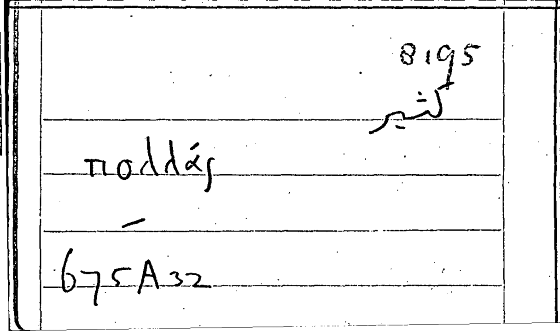 8195
كثير
πολλάς
–
675A32